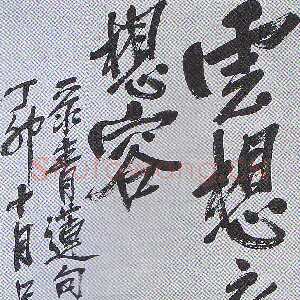 雲想衣
想容
录青蓮句
丁卯十月